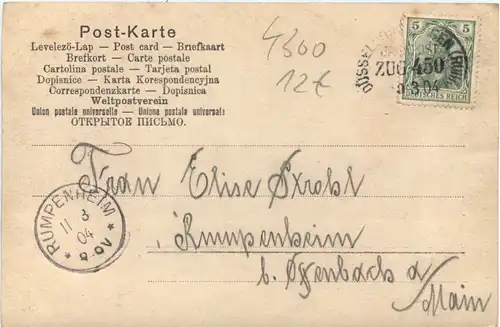 Post-Karte
Levelező-Lap — Post card — Briefkaart
Brefkort — Carte postale
Cartolina postale — Tarjeta postal
Dopisnice — Karta Korespondencyjna
Correspondenzkarte — Dopisnica
Weltpostverein
Union postale universelle — Unione postale universale
ОТКРЫТОЕ ПИСЬМО.
4300
12€
5 5
ZUG 450
3.04
DEUTSCHES REICH
RUMPENHEIM
11 3
04
Frau Elise Strobl
Rumpenheim
b. Offenbach a
Main